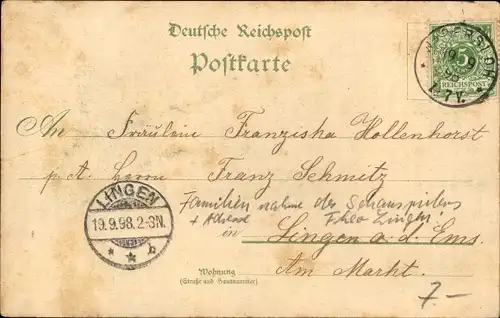 Deutsche Reichspost
Postkarte
WADERSLOH
19 9
98
7 V.
5
REICHSPOST
An Fräulein Franziska Hollenhorst
p. A. Herrn Franz Schmitz
LINGEN
19.9.98.2-3N.
* * b
Familienname des Schauspielers
+ Theo Lingen!
in Lingen a. d. Ems.
Am Markt.
Wohnung
(Straße und Hausnummer)
7.-